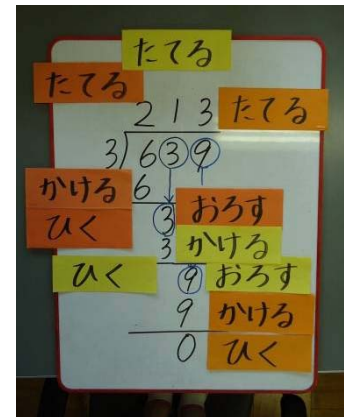 たてる
たてる
2 1 3 たてる
3)6 3 9
かける 6
ひく 3 おろす
3 かける
ひく 9 おろす
9 かける
0 ひく